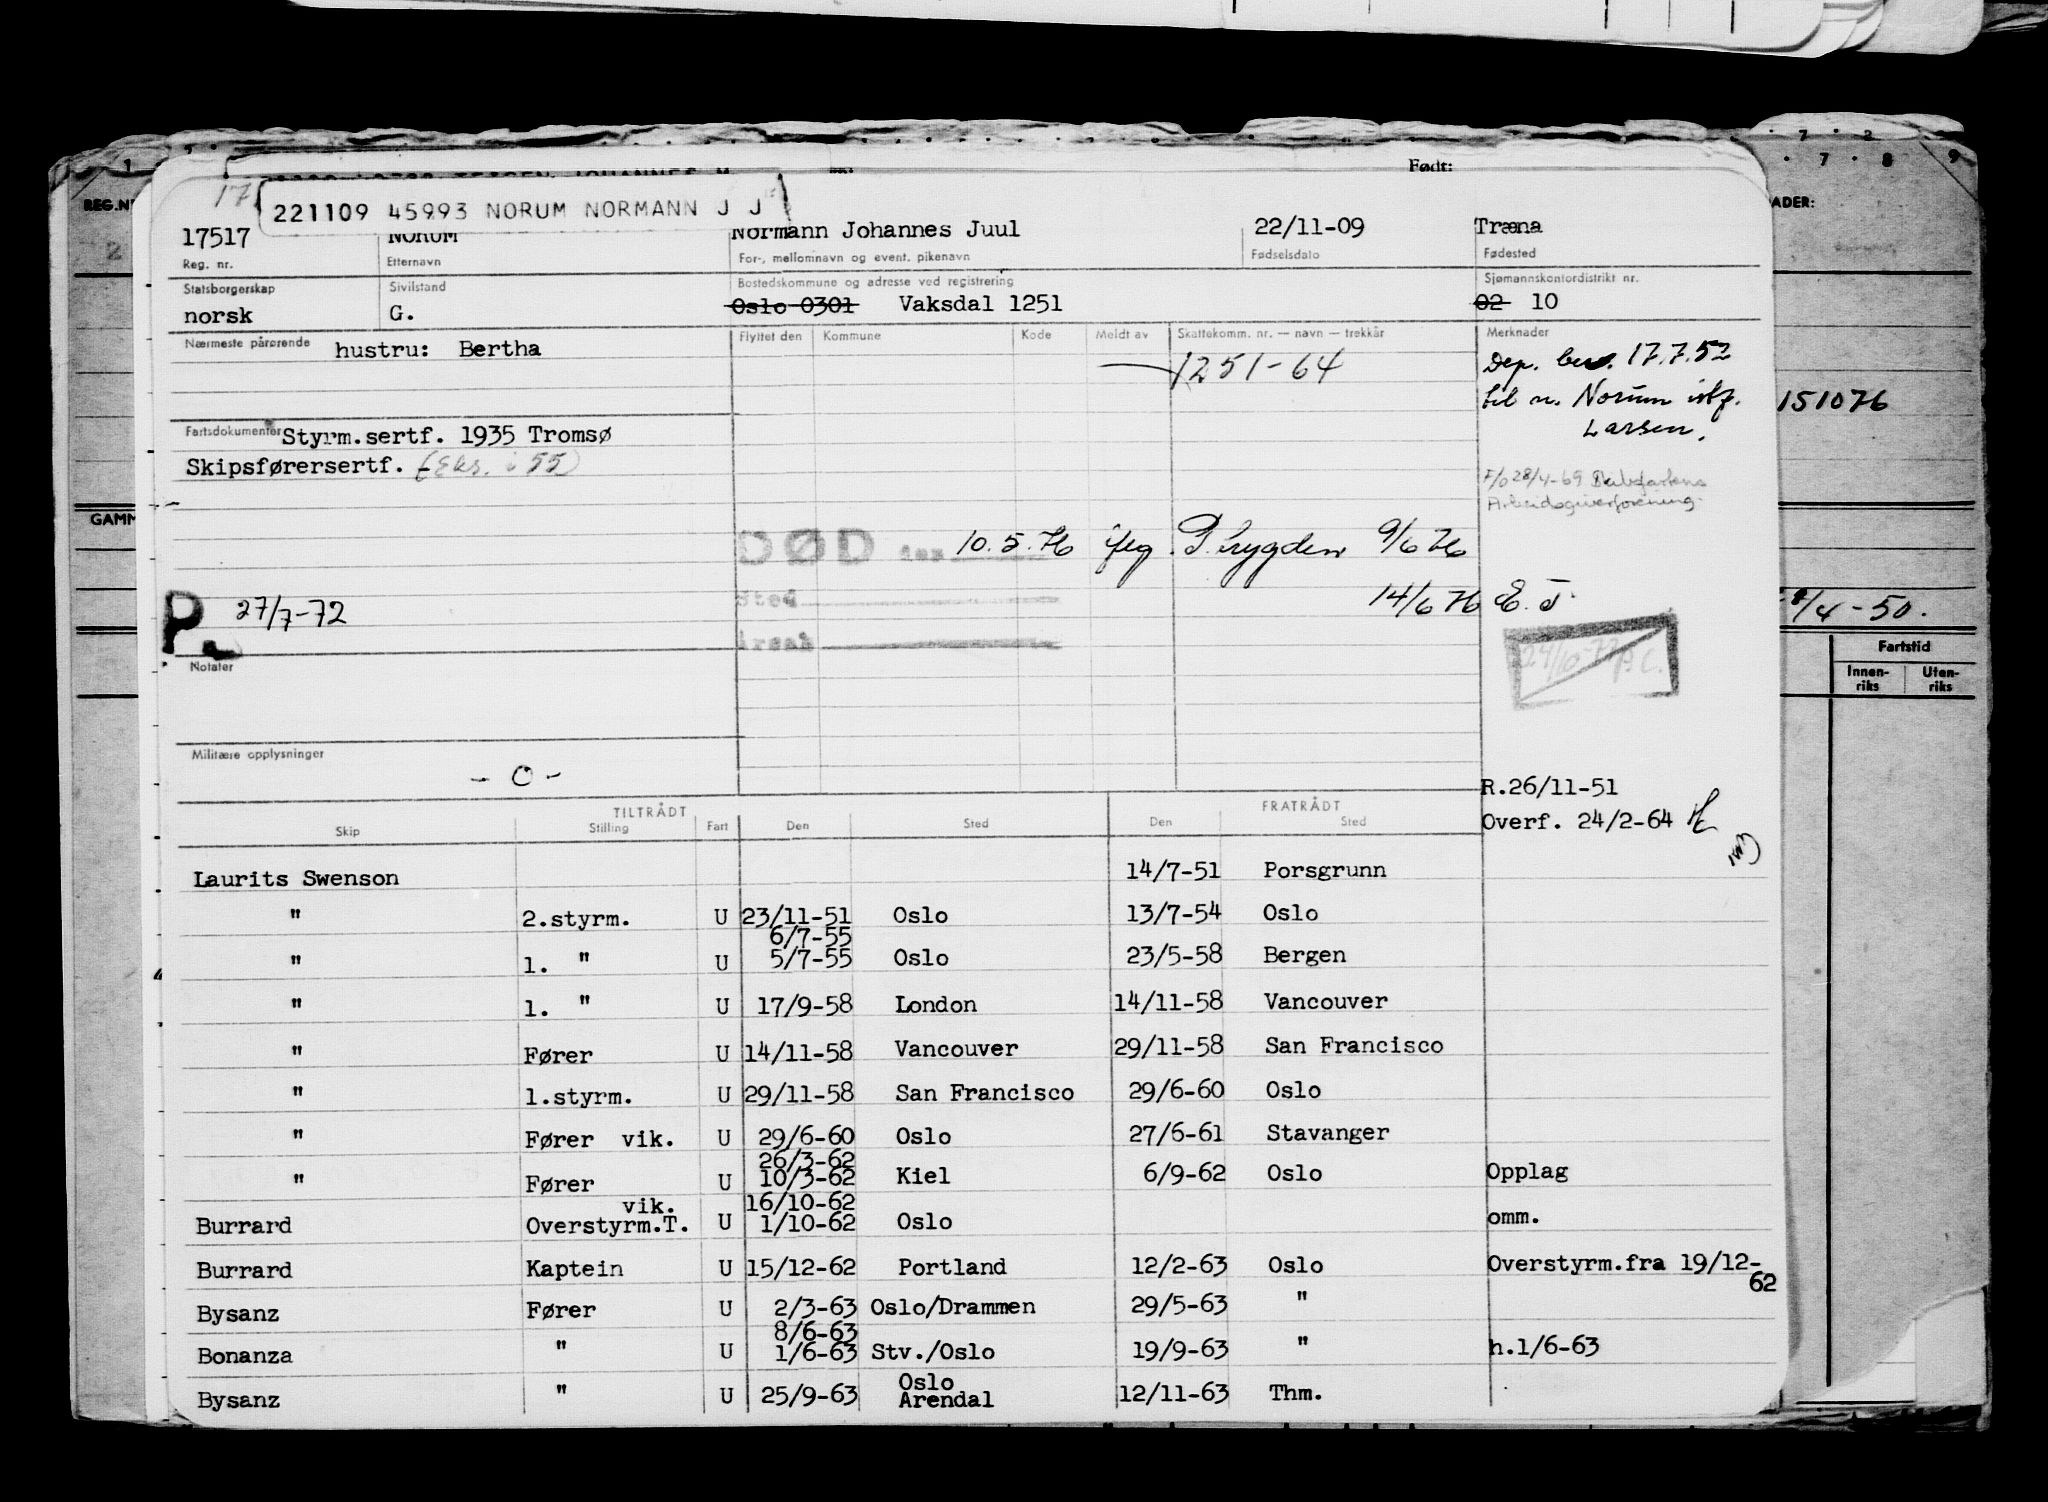 Født:
REG.NR
ADER:
221109 45993 NORUM NORMANN J J
17517 NORUM Normann Johannes Juul 22/11-09 Træna
Reg. nr. Etternavn For-, mellomnavn og event. pikenavn Fødselsdato Fødested
Statsborgerskap Sivilstand Bostedskommune og adresse ved registrering Sjømannskontordistrikt nr.
norsk G. Oslo 0301 Vaksdal 1251 02 10
Nærmeste pårørende hustru: Bertha Flyttet den Kommune Kode Meldt av Skattekomm. nr. — navn — trekkår Merknader
1251-64
Dep. bev. 17.7.52
til n. Norum istf.
Larsen.
151076
Fartsdokumenter Styrm.sertf. 1935 Tromsø
Skipsførersertf. (Eks. i 55)
F/o 28/4-69
Arbeidsgiverforening.
GAMM
DØD den 10.5.76 iflg. P. trygden 9/6 76
Sted 14/6 76 E. J.
Årsak
P. 27/7-72
/4-50.
24/10-77 A.C.
Fartstid
Innen-riks Uten-riks
Notater
Militære opplysninger
- 0 -
R.26/11-51
Overf. 24/2-64
TILTRÅDT FRATRÅDT
Skip Stilling Fart Den Sted Den Sted
Laurits Swenson 14/7-51 Porsgrunn
" 2.styrm. U 23/11-51 Oslo 13/7-54 Oslo
6/7-55
" 1. " U 5/7-55 Oslo 23/5-58 Bergen
" 1. " U 17/9-58 London 14/11-58 Vancouver
" Fører U 14/11-58 Vancouver 29/11-58 San Francisco
" 1.styrm. U 29/11-58 San Francisco 29/6-60 Oslo
" Fører vik. U 29/6-60 Oslo 27/6-61 Stavanger
26/3-62
" Fører U 10/3-62 Kiel 6/9-62 Oslo Opplag
vik. 16/10-62
Burrard Overstyrm.T. U 1/10-62 Oslo omm.
Burrard Kaptein U 15/12-62 Portland 12/2-63 Oslo Overstyrm.fra 19/12-
62
Bysanz Fører U 2/3-63 Oslo/Drammen 29/5-63 "
8/6-63
Bonanza " U 1/6-63 Stv./Oslo 19/9-63 " h.1/6-63
Oslo
Bysanz " U 25/9-63 Arendal 12/11-63 Thm.